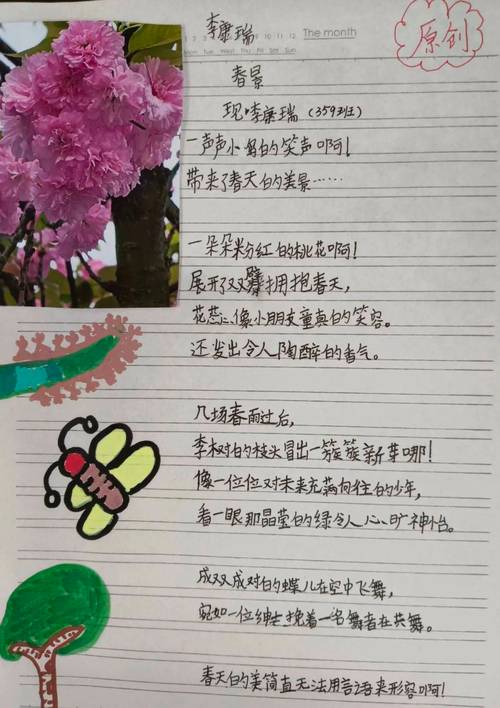 李康瑞
1 2 3 4 5 6 7 8 9 10 11 12 The month
Mon Tue Wed Thu Fri Sat Sun
原创
春景
现·李康瑞(359班)
一声声小鸟的笑声啊!
带来了春天的美景……
一朵朵粉红的桃花啊!
展开了双臂拥抱春天,
花蕊、像小朋友童真的笑容。
还发出令人陶醉的香气。
几场春雨过后,
李树的枝头冒出一簇簇新芽哪!
像一位位对未来充满向往的少年,
看一眼那晶莹的绿令人心旷神怡。
成双成对的蝶儿在空中飞舞,
宛如一位绅士挽着一名舞者在共舞。
春天的美简直无法用言语来形容啊!